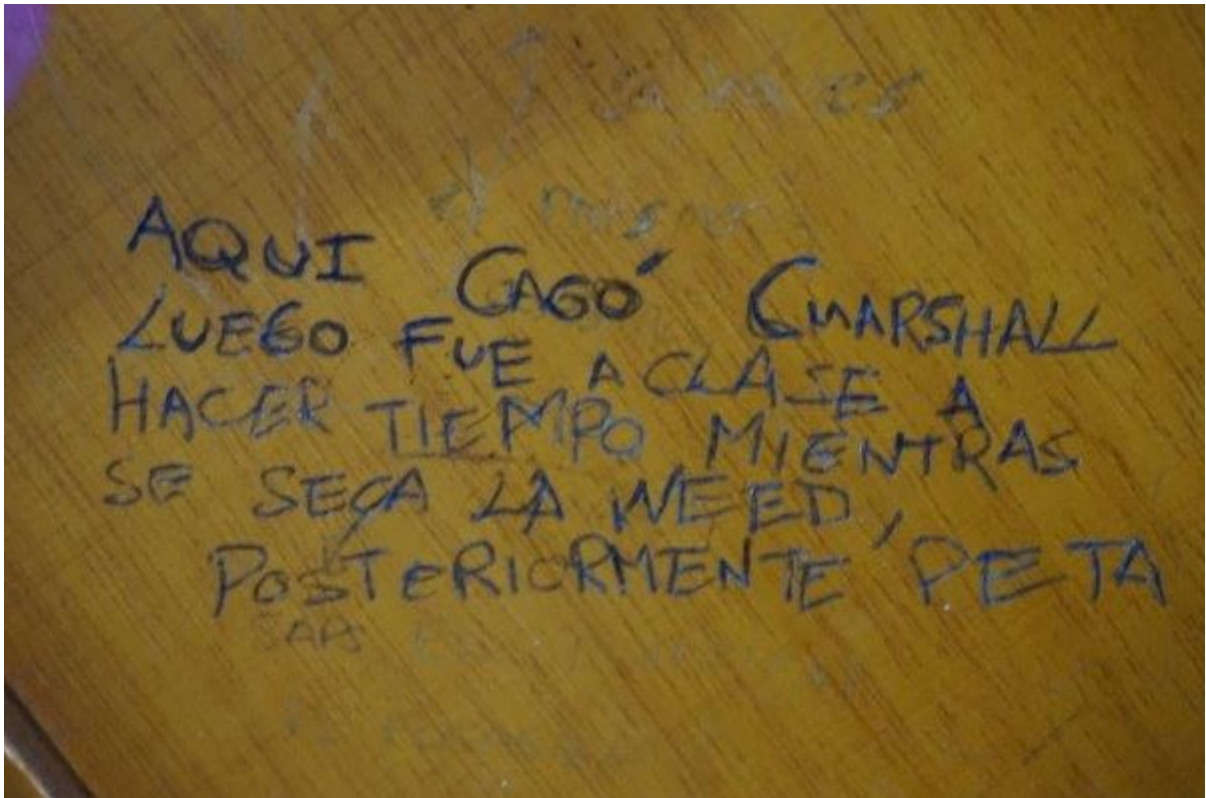 AQUI CAGÓ CMARSHALL
LUEGO FUE A CLASE A
HACER TIEMPO MIENTRAS
SE SECA LA WEED,
POSTERIORMENTE PETA